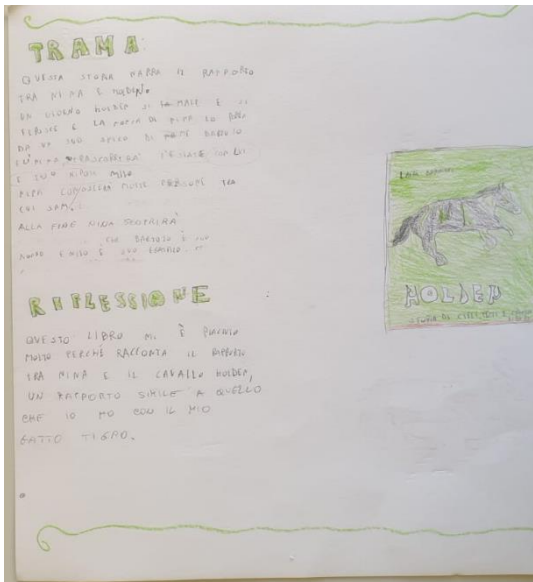 TRAMA
QUESTA STORIA NARRA IL RAPPORTO
TRA NINA E HOLDEN.
UN GIORNO HOLDEN SI FA MALE E SI
FERISCE E LA MAMMA DI NINA LO
DA UN SUO AMICO DI NOME BARTOLO
NINA TRASCORRERÀ L'ESTATE CON LUI
E SUO NIPOTE MISO.
NINA CONOSCERÀ MOLTE PERSONE TRA
CUI SAM.
ALLA FINE NINA SCOPRIRÀ
BARTOLO È SUO
NONNO E MISO È SUO
RIFLESSIONE
QUESTO LIBRO MI È PIACIUTO
MOLTO PERCHÉ RACCONTA IL RAPPORTO
TRA NINA E IL CAVALLO HOLDEN,
UN RAPPORTO SIMILE A QUELLO
CHE IO HO CON IL MIO
GATTO TIGRO.
HOLDEN
STORIA DI